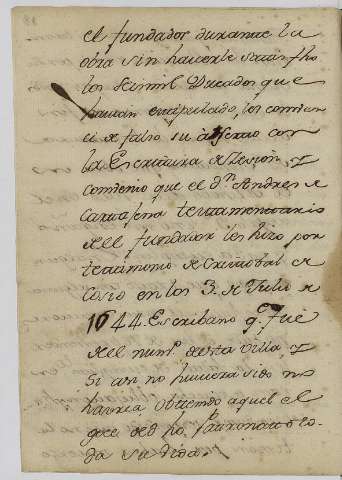 el fundador durante la
obra sin haverle satisfho
los seismil Ducados que
havian estipulado, los
de falso su aserto con
la Escritura de Zesion, y
combenio que el dn Andres de
Cartagena testamentario
del fundador les hizo por
testimonio de Cristobal de
Cosio en los 3 de Julio de
1644. Escribano qe fue
del numo de esta Villa, y
si asi no huviera sido no
havria obtenido aquel el
goce de dho Patronato to-
da su vida.